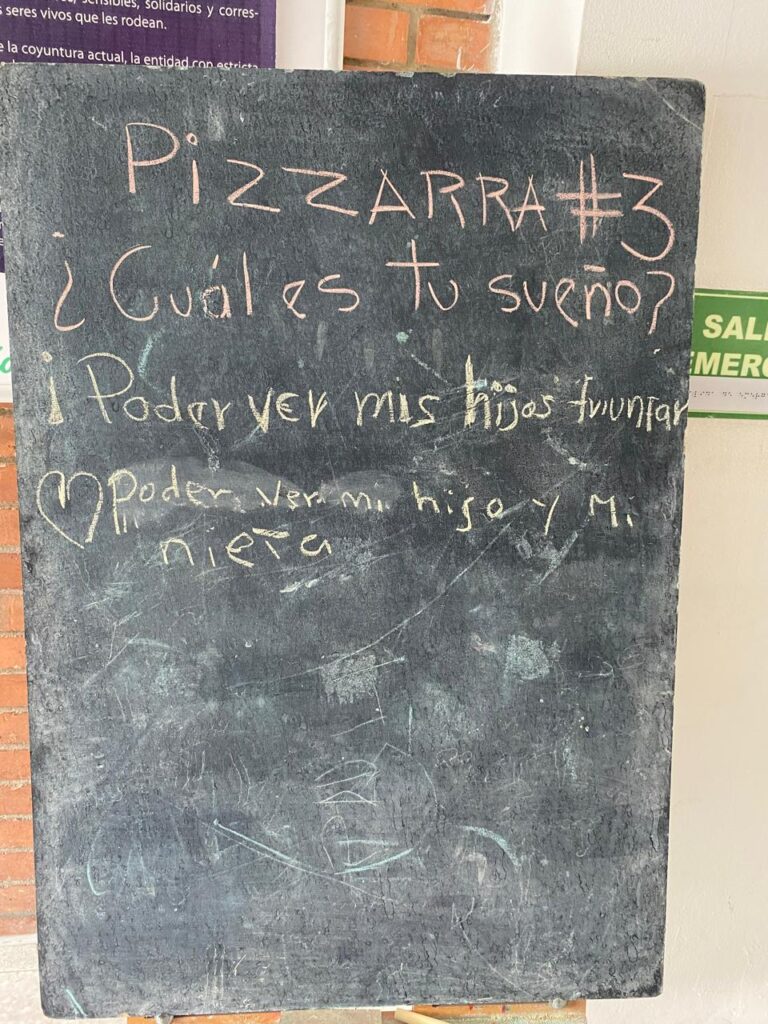 sensibles, solidarios y corres-
s seres vivos que les rodean.
e la coyuntura actual, la entidad con estricta
PIZZARRA #3
¿Cuál es tu sueño?
¡Poder ver mis hijos triunfar
Poder ver mi hijo y Mi
nieta
SALI
EMERG